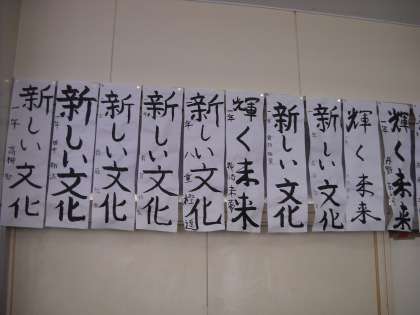 新しい文化
新しい文化
新しい文化
新しい文化
新しい文化
輝く未来
新しい文化
新しい文化
輝く未来
輝く未来